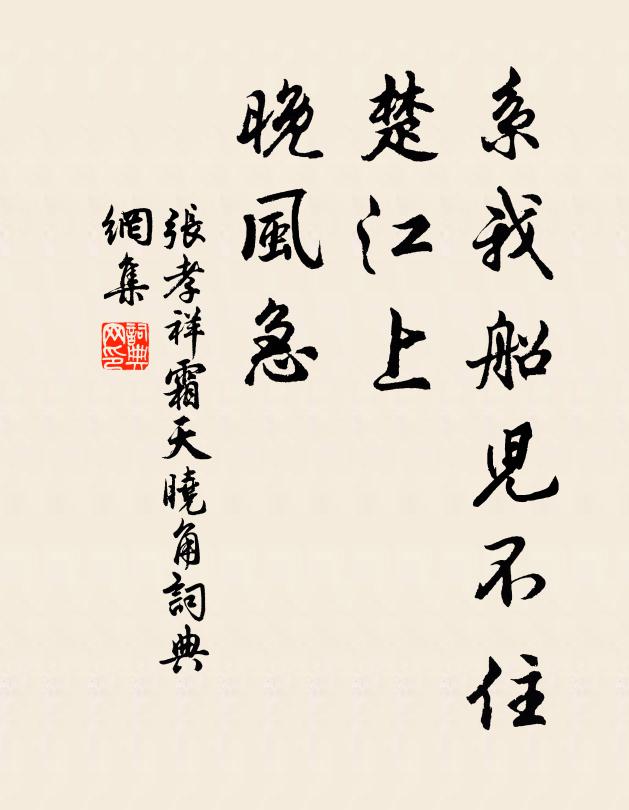 系我船児不住
楚江上
晚風急
張孝祥霜天曉角詞典
網集
詞典
网印